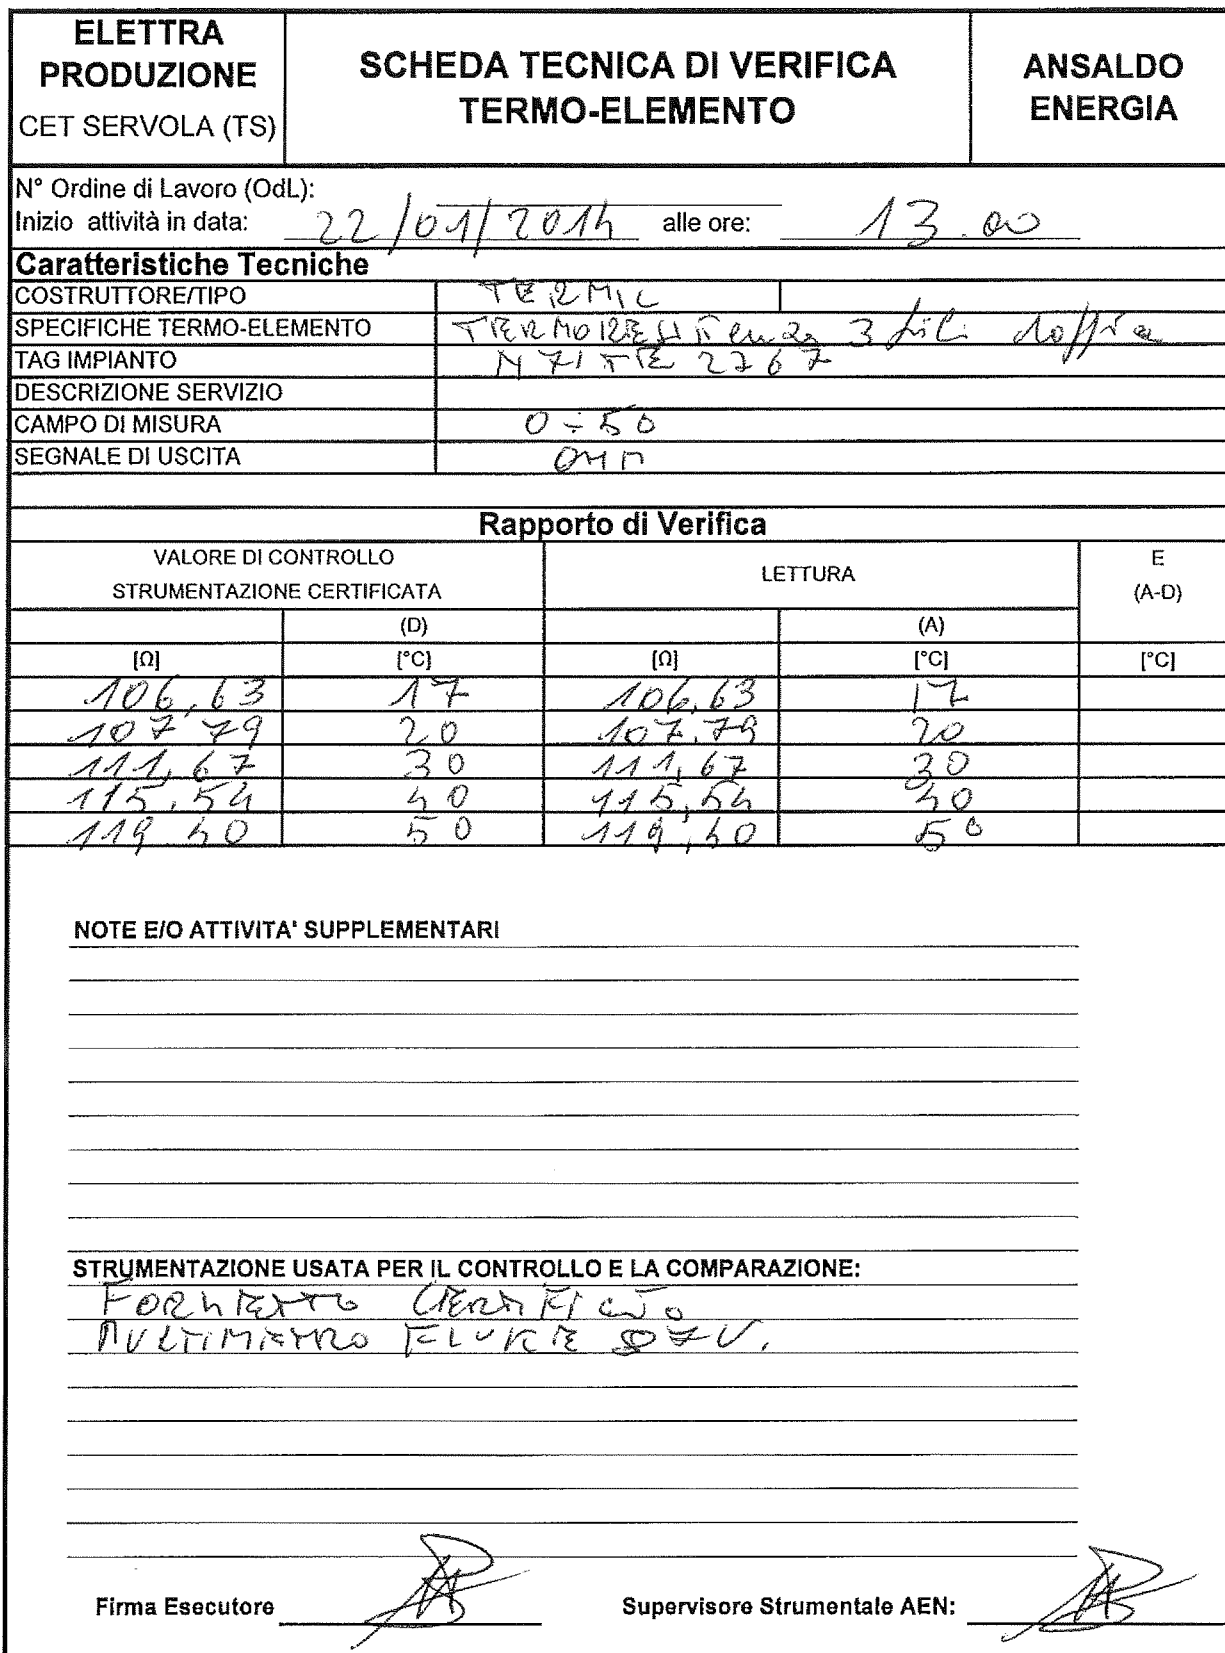 ELETTRA
PRODUZIONE
CET SERVOLA (TS)
SCHEDA TECNICA DI VERIFICA
TERMO-ELEMENTO
ANSALDO
ENERGIA
N° Ordine di Lavoro (OdL):
Inizio attività in data: 22/01/2014 alle ore: 13.00
Caratteristiche Tecniche
COSTRUTTORE/TIPO TERMIC
SPECIFICHE TERMO-ELEMENTO TERMORESISTENZA 3 fili doppia
TAG IMPIANTO N71TE2767
DESCRIZIONE SERVIZIO
CAMPO DI MISURA 0 ÷ 50
SEGNALE DI USCITA OHM
Rapporto di Verifica
VALORE DI CONTROLLO
STRUMENTAZIONE CERTIFICATA
LETTURA
E
(A-D)
(D) (A)
[Ω] [°C] [Ω] [°C] [°C]
106,63 17 106,63 17
107.79 20 107.79 20
111,67 30 111,67 30
115,54 40 115,54 40
119.40 50 119,40 50
NOTE E/O ATTIVITA' SUPPLEMENTARI
STRUMENTAZIONE USATA PER IL CONTROLLO E LA COMPARAZIONE:
FORNETTO
MULTIMETRO FLUKE 87V.
Firma Esecutore
Supervisore Strumentale AEN: